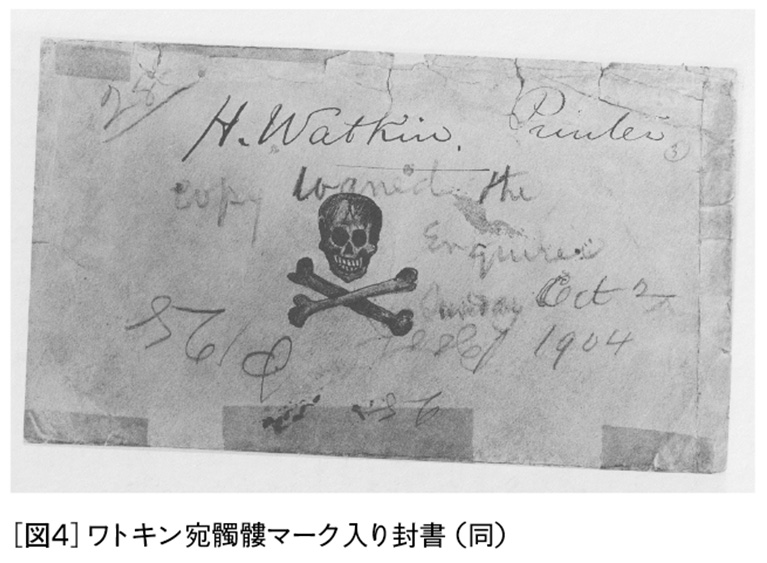 28
H. Watkin, Printer
3
copy loaned the
Enquirer
Sunday Oct 2
1904
[図4] ワトキン宛髑髏マーク入り封書（同）